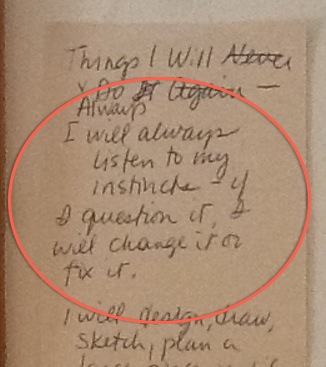 Things I Will Never
Do It Again —
Always
I will always
listen to my
instincts – if
I question it, I
will change it or
fix it.
I will design, draw,
sketch, plan a